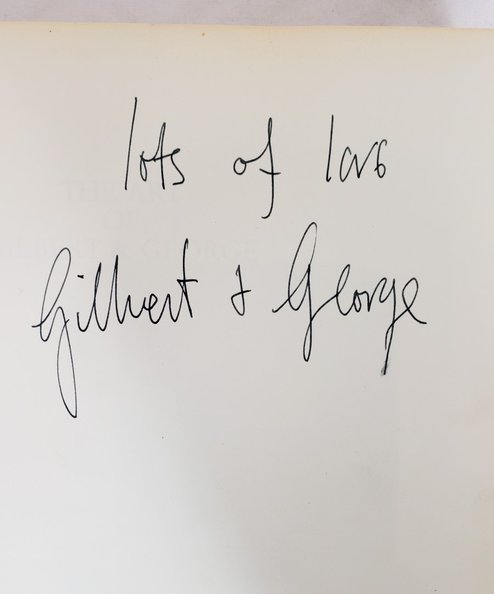 lots of love
Gilbert & George
THE ART
OF
GILBERT & GEORGE